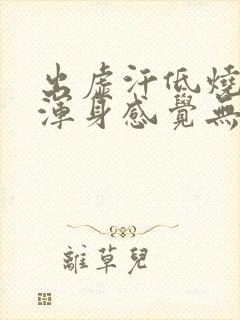 出虛汗低燒
渾身感覺無
離草兒